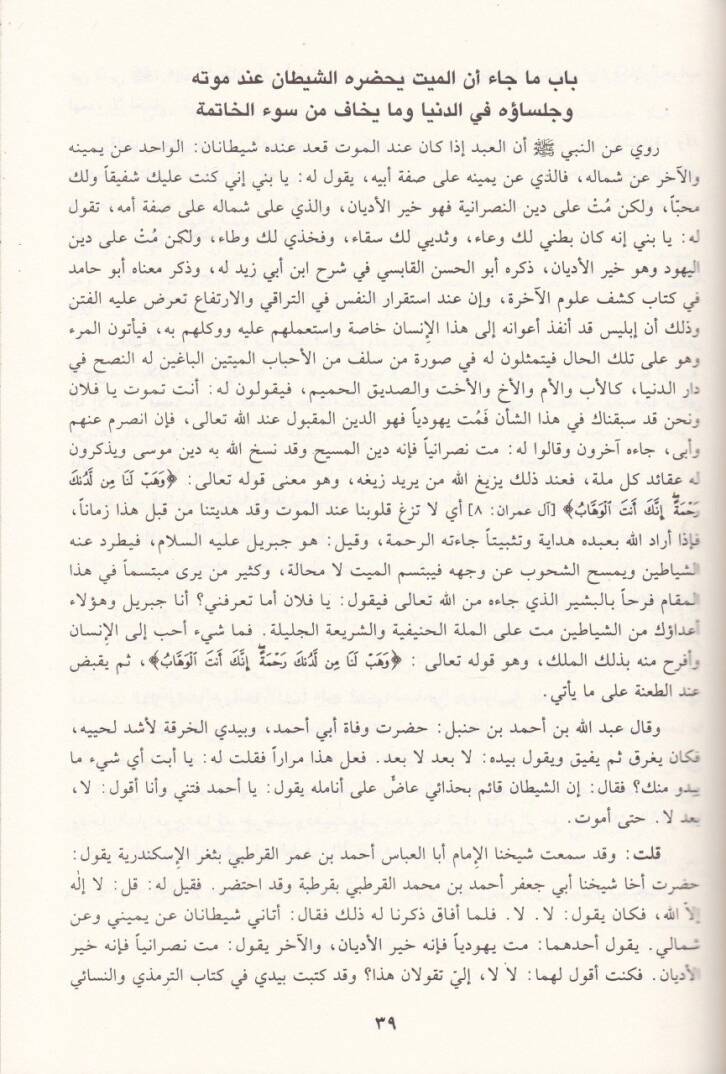 باب ما جاء أن الميت يحضره الشيطان عند موته
وجلساؤه في الدنيا وما يخاف من سوء الخاتمة
روي عن النبي ﷺ أن العبد إذا كان عند الموت قعد عنده شيطانان: الواحد عن يمينه
والآخر عن شماله، فالذي عن يمينه على صفة أبيه، يقول له: يا بني إني كنت عليك شفيقاً ولك
محبّاً، ولكن مُتْ على دين النصرانية فهو خير الأديان، والذي على شماله على صفة أمه، تقول
له: يا بني إنه كان بطني لك وعاء، وثديي لك سقاء، وفخذي لك وطاء، ولكن مُتْ على دين
اليهود وهو خير الأديان، ذكره أبو الحسن القابسي في شرح ابن أبي زيد له، وذكر معناه أبو حامد
في كتاب كشف علوم الآخرة، وإن عند استقرار النفس في التراقي والارتفاع تعرض عليه الفتن
وذلك أن إبليس قد أنفذ أعوانه إلى هذا الإنسان خاصة واستعملهم عليه ووكلهم به، فيأتون المرء
وهو على تلك الحال فيتمثلون له في صورة من سلف من الأحباب الميتين الباغين له النصح في
دار الدنيا، كالأب والأم والأخ والأخت والصديق الحميم، فيقولون له: أنت تموت يا فلان
ونحن قد سبقناك في هذا الشأن فَمُت يهودياً فهو الدين المقبول عند الله تعالى، فإن انصرم عنهم
وأبى، جاءه آخرون وقالوا له: مت نصرانياً فإنه دين المسيح وقد نسخ الله به دين موسى ويذكرون
له عقائد كل ملة، فعند ذلك يزيغ الله من يريد زيغه، وهو معنى قوله تعالى: ﴿وَهَبْ لَنَا مِن لَّدُنكَ
رَحْمَةً ۚ إِنَّكَ أَنتَ ٱلْوَهَّابُ﴾ [آل عمران: ٨] أي لا تزغ قلوبنا عند الموت وقد هديتنا من قبل هذا زماناً،
فإذا أراد الله بعبده هداية وتثبيتاً جاءته الرحمة، وقيل: هو جبريل عليه السلام، فيطرد عنه
الشياطين ويمسح الشحوب عن وجهه فيبتسم الميت لا محالة، وكثير من يرى مبتسماً في هذا
المقام فرحاً بالبشير الذي جاءه من الله تعالى فيقول: يا فلان أما تعرفني؟ أنا جبريل وهؤلاء
أعداؤك من الشياطين مت على الملة الحنيفية والشريعة الجليلة. فما شيء أحب إلى الإنسان
وأفرح منه بذلك الملك، وهو قوله تعالى : ﴿وَهَبْ لَنَا مِن لَّدُنكَ رَحْمَةً ۚ إِنَّكَ أَنتَ ٱلْوَهَّابُ﴾، ثم يقبض
عند الطعنة على ما يأتي.
وقال عبد الله بن أحمد بن حنبل: حضرت وفاة أبي أحمد، وبيدي الخرقة لأشد لحييه،
فكان يغرق ثم يفيق ويقول بيده: لا بعد لا بعد. فعل هذا مراراً فقلت له: يا أبت أي شيء ما
يبدو منك؟ فقال: إن الشيطان قائم بحذائي عاضٌّ على أنامله يقول: يا أحمد فتني وأنا أقول: لا،
بعد لا. حتى أموت.
قلت: وقد سمعت شيخنا الإمام أبا العباس أحمد بن عمر القرطبي بثغر الإسكندرية يقول:
حضرت أخا شيخنا أبي جعفر أحمد بن محمد القرطبي بقرطبة وقد احتضر. فقيل له: قل: لا إله
إلاّ الله، فكان يقول: لا. لا. فلما أفاق ذكرنا له ذلك فقال: أتاني شيطانان عن يميني وعن
شمالي. يقول أحدهما: مت يهودياً فإنه خير الأديان، والآخر يقول: مت نصرانياً فإنه خير
الأديان. فكنت أقول لهما: لا لا، إليّ تقولان هذا؟ وقد كتبت بيدي في كتاب الترمذي والنسائي
٣٩